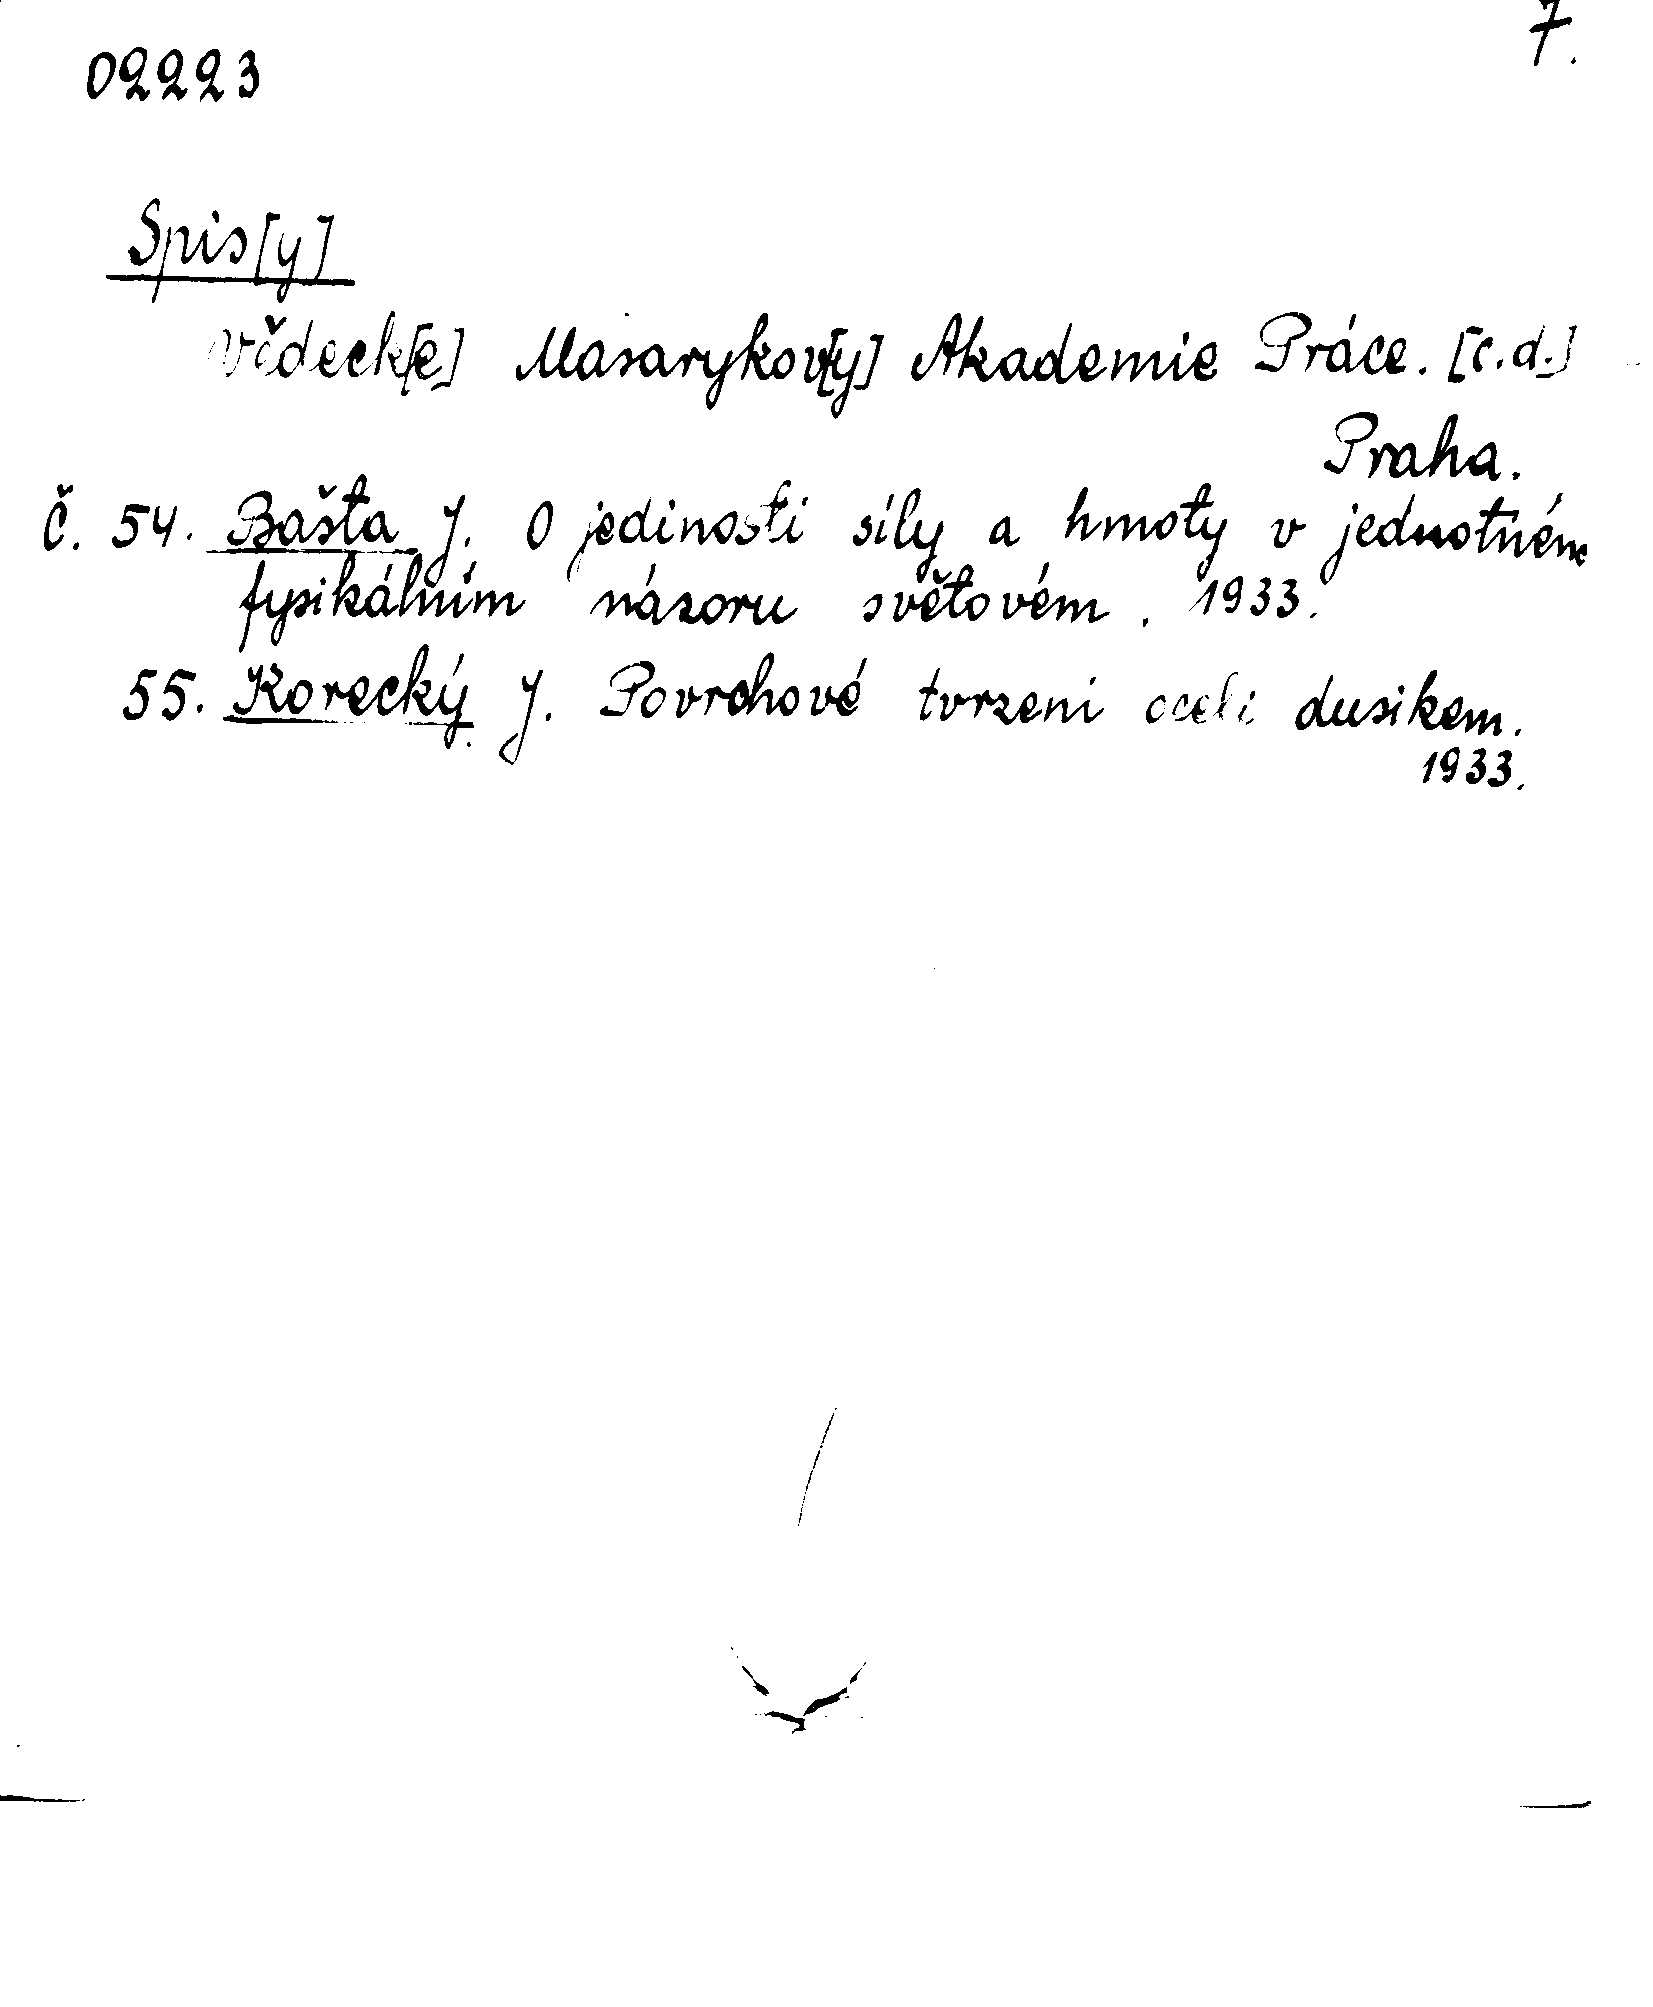 7.
02223
Spis[y]
vědeck[é] Masarykov[y] Akademie Práce. [c.d.]
Praha.
Č. 54. Bašta J. O jedinosti síly a hmoty v jednotném
fysikálním názoru světovém. 1933.
55. Korecký J. Povrchové tvrzení oceli dusíkem.
1933.